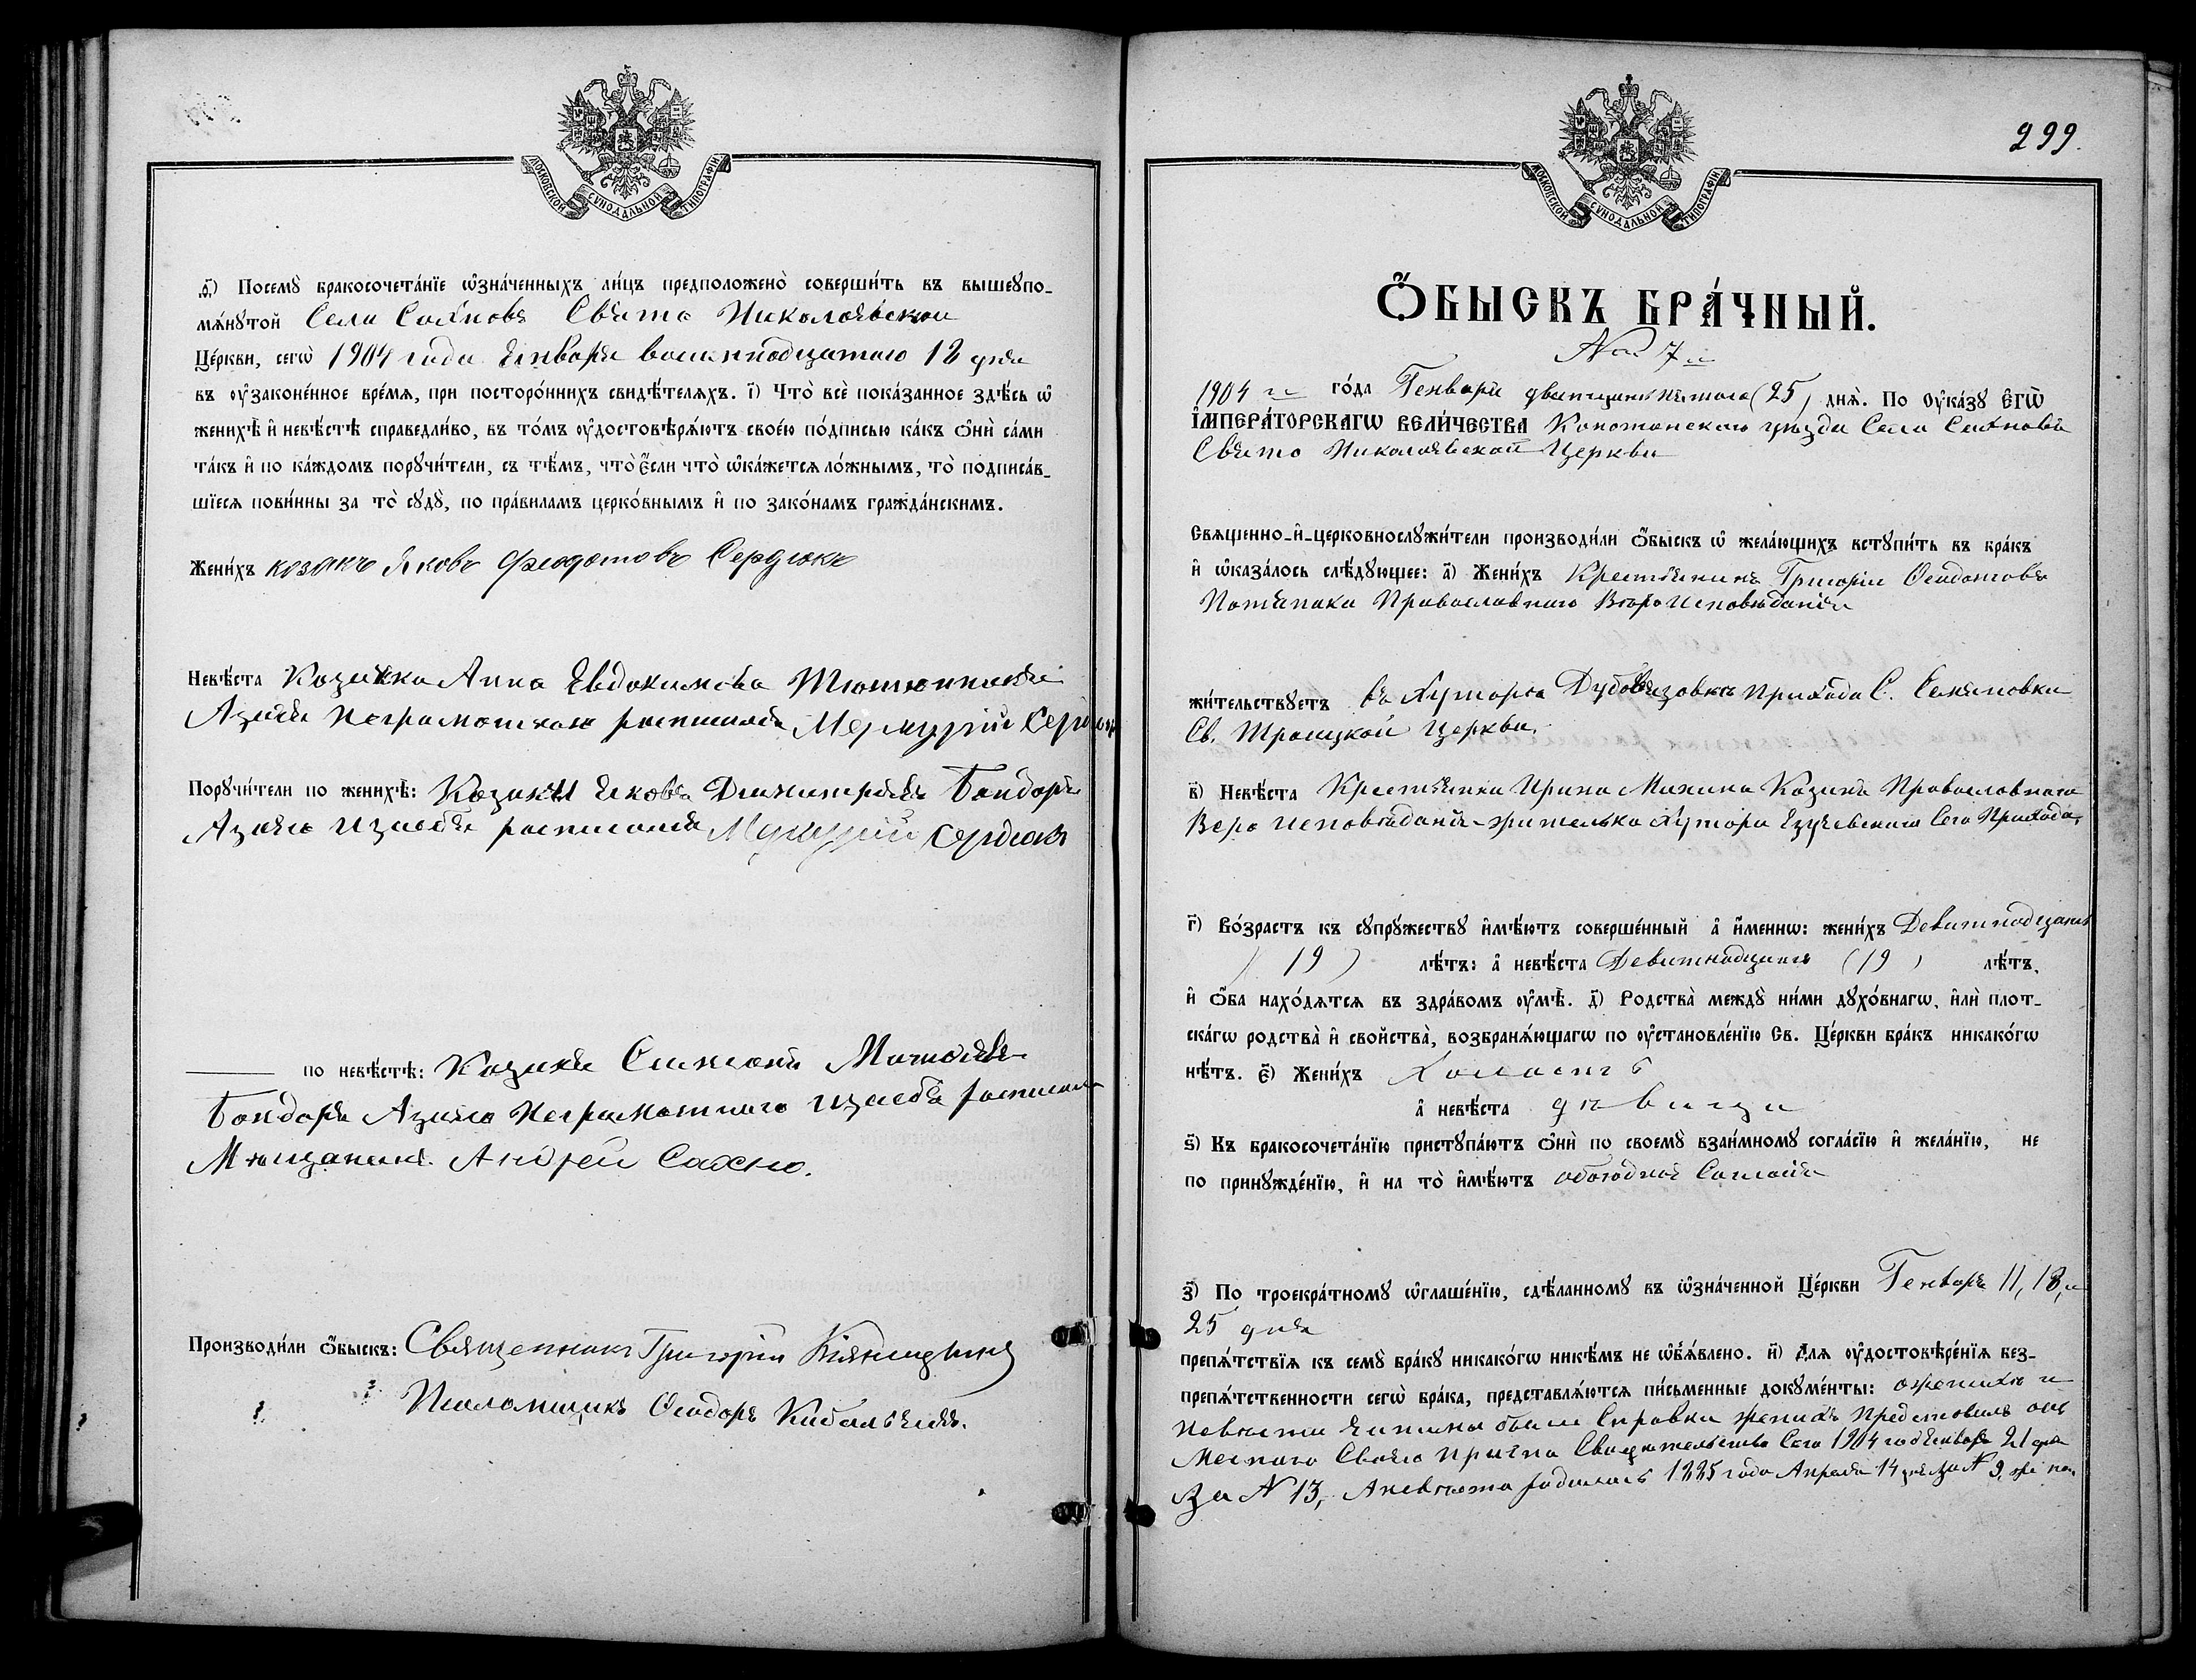 МОСКОВСКОЙ СУНОДАЛЬНОЙ ТИПОГРАФІИ
ѳ҃) Посемꙋ бракосочета́нїе ѡ҆зна́ченныхъ ли́цъ предположено̀ соверши́ть въ вышеꙋпо-
мѧ́нꙋтой Села Саѣновъ Свято Николаевской
Це́ркви, сегѡ̀ 1904 года Января восемнадцатаго 18 дня
въ ѹ҆законе́нное вре́мѧ, при посторо́ннихъ свидѣ́телѧхъ. і҃) Что̀ всѐ пока́занное здѣ́сь ѡ҆
женихѣ̀ и҆ невѣ́стѣ справедли́во, въ то́мъ ѹ҆достовѣрѧ́ютъ свое́ю по́дписью ка́къ ѻ҆нѝ са́ми
та́къ и҆ по ка́ждомъ порꙋчи́тели, съ тѣ́мъ, что̀ є҆́сли что̀ ѡ҆ка́жетсѧ ло́жнымъ, то̀ подписа́в-
шїесѧ пови́нны за то̀ сꙋдꙋ̀, по пра́виламъ церко́внымъ и҆ по зако́намъ гражда́нскимъ.
Жени́хъ козакъ Яковъ Феодотовъ Сердюкъ
Невѣ́ста Козачка Анна Евдокимова Тютюнникова
Азанея неграмотною росписался Меркурій Сердюкъ
Порꙋчи́тели по женихѣ̀: Козакъ Яковъ Димитріевъ Бондарь
Азанего и за себя росписался Меркурій Сердюкъ
по невѣ́стѣ: Козакъ Симеонъ Матвѣевъ
Бондарь Азанего Неграмотнаго и за себя росписался
Мѣщанинъ Андрей Сахно.
Производи́ли ѻ҆́быскъ: Священникъ Григорій
Псаломщикъ Ѳеодоръ Кибальчичъ.
299.
МОСКОВСКОЙ СУНОДАЛЬНОЙ ТИПОГРАФІИ
Ѻ҆́БЫСКЪ БРА́ЧНЫЙ.
№ 7й
1904 го го́да Генваря двадцать пятаго (25) днѧ̀. По ѹ҆ка́зꙋ Е҆ГѠ̀
І҆МПЕРА́ТОРСКАГѠ ВЕЛИ́ЧЕСТВА Конотопскаго уѣзда Села Саѣновъ
Свято Николаевской Церкви
Свѧщенно-и҆-церковнослꙋжи́тели производи́ли ѻ҆́быскъ ѡ҆ жела́ющихъ встꙋпи́ть въ бра́къ
и҆ ѡ҆каза́лось слѣ́дꙋющее: а҃) Жени́хъ Крестьянинъ Григорій Ѳеодотовъ
Потапака Православнаго Вѣроисповѣданія
жи́тельствꙋетъ въ Хуторѣ Дубовязовкѣ Прихода С. Семяновки
Св. Троицкой Церкви.
в҃) Невѣ́ста Крестьянка Ирина Михина Козина Православнаго
Веро исповѣданія жителька Хутора Езучевскаго Сего Прихода,
г҃) Во́зрастъ къ сꙋпрꙋ́жествꙋ и҆мѣ́ютъ соверше́нный а҆ и҆́меннѡ: жени́хъ Девятнадцать
(19) лѣ́тъ: а҆ невѣ́ста Девятнадцать (19) лѣ́тъ,
и҆ ѻ҆́ба нахо́дѧтсѧ въ здра́вомъ ѹ҆мѣ̀. д҃) Родства̀ междꙋ̀ ни́ми дꙋхо́внагѡ, и҆лѝ плот-
ска́гѡ родства̀ и҆ свойства̀, возбранѧ́ющагѡ по ѹ҆становле́нїю Св. Це́ркви бра́къ никако́гѡ
нѣ́тъ. є҃) Жени́хъ Холостъ
а҆ невѣ́ста дѣвица
ѕ҃) Къ бракосочета́нїю пристꙋпа́ютъ ѻ҆нѝ по своемꙋ̀ взаи́мномꙋ согла́сїю и҆ жела́нїю, не
по принꙋжде́нїю, и҆ на то̀ и҆мѣ́ютъ обоюдное Согласіе
з҃) По троекра́тномꙋ ѡ҆глаше́нїю, сдѣ́ланномꙋ въ ѡ҆зна́ченной Це́ркви Генваря 11, 18, и
25 дня
препѧ́тствїѧ къ семꙋ̀ бра́кꙋ никако́гѡ никѣ́мъ не ѡ҆б̾ѧ́влено. и҃) Длѧ ѹ҆достовѣре́нїѧ без-
препѧ́тственности сегѡ̀ бра́ка, представлѧ́ютсѧ пи́сьменные докꙋме́нты: о женихѣ и
невѣсти Справки женихъ Представилъ отъ
Местнаго Своего Причта Свидѣтельство Сего 1904 год Генваря 21 дня
За № 13, А невѣста родилась 1885 года Апреля 14 дня За № 9,